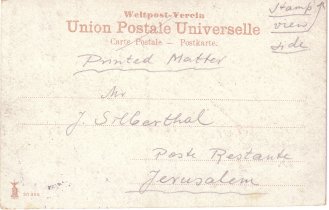 Weltpost-Verein
Union Postale Universelle
Carte Postale – Postkarte.
Stamp
view
side
Printed Matter
Mr
J. Silberthal
Poste Restante
Jerusalem